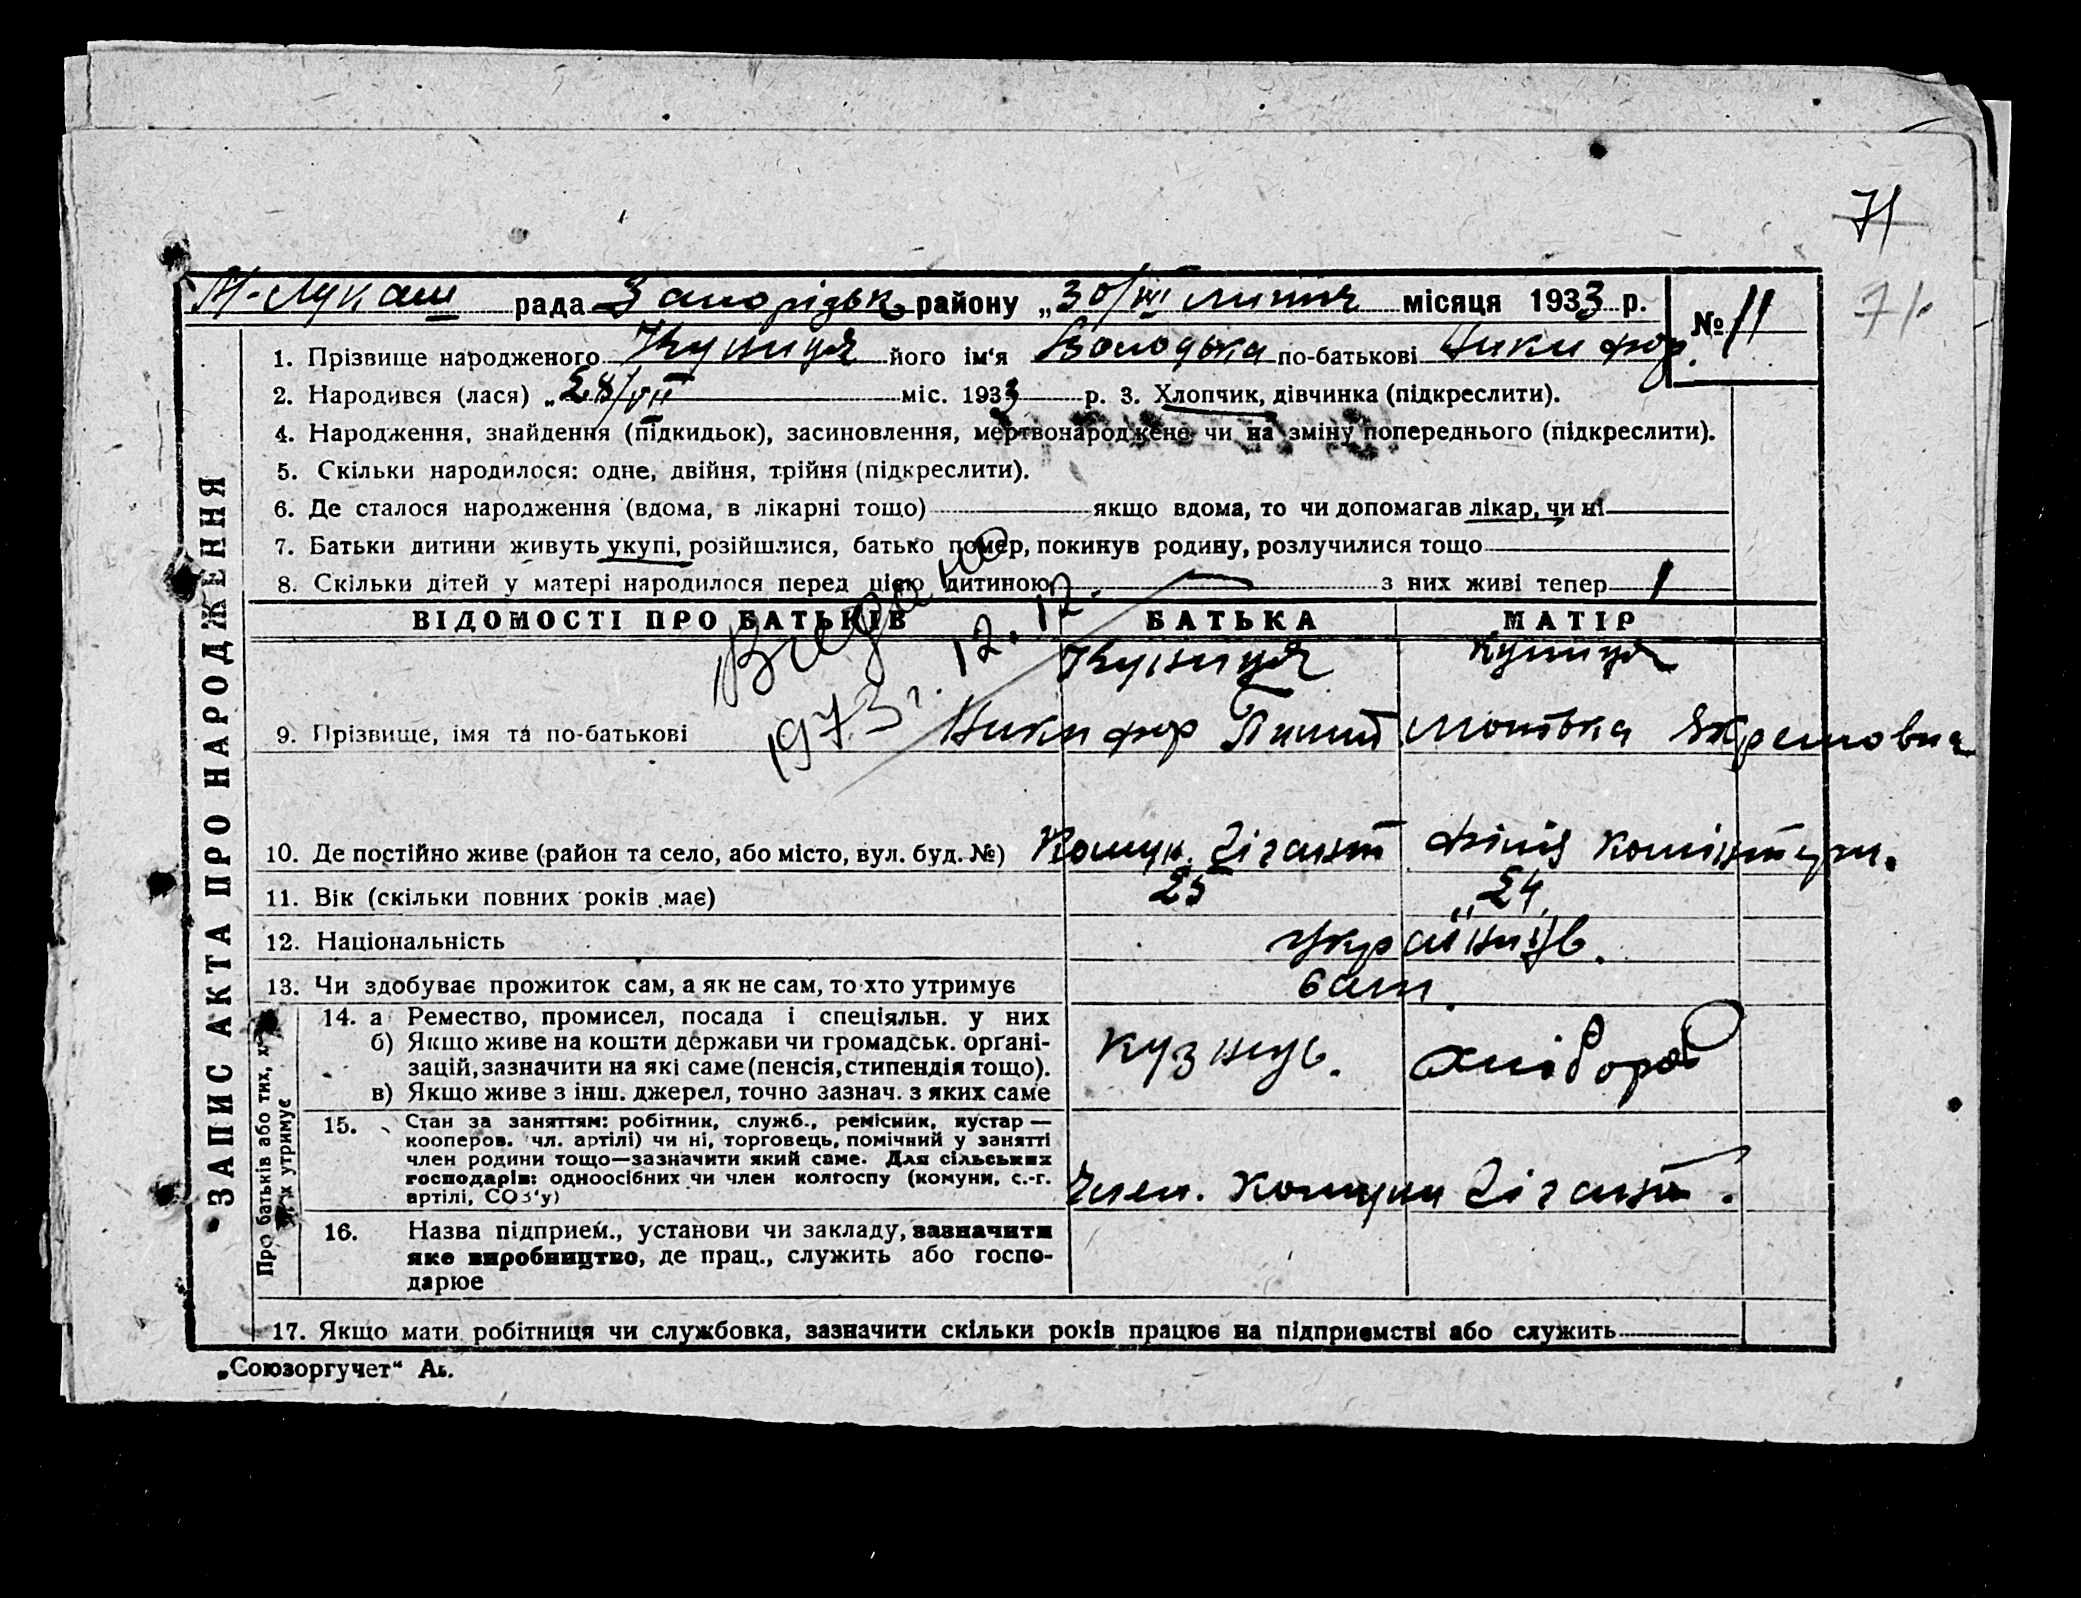 71
71
М-Лукаш рада Запорізьк району „30/VII липня місяця 1933 р. № 11
1. Прізвище народженого Куниця його ім‘я Володька по-батькові Никифор.
2. Народився (лася) „28/VII міс. 1933 р. 3. Хлопчик, дівчинка (підкреслити).
4. Народження, знайдення (підкидьок), засиновлення, мертвонароджене чи на зміну попереднього (підкреслити).
5. Скільки народилося: одне, двійня, трійня (підкреслити).
6. Де сталося народження (вдома, в лікарні тощо) якщо вдома, то чи допомагав лікар, чи ні
7. Батьки дитини живуть укупі, розійшлися, батько помер, покинув родину, розлучилися тощо
8. Скільки дітей у матері народилося перед цією дитиною з них живі тепер 1
ЗАПИС АКТА ПРО НАРОДЖЕННЯ
ВІДОМОСТІ ПРО БАТЬКІВ БАТЬКА МАТІР
Видано 12.12.
1973 г.
Куниця Куниця
9. Прізвище, імя та по-батькові Никифор Мотька
10. Де постійно живе (район та село, або місто, вул. буд. №) Комун. Гігант філія Комінтерн.
11. Вік (скільки повних років має) 25 „24
12. Національність українців.
13. Чи здобуває прожиток сам, а як не сам, то хто утримує сам.
Про батьків або тих, х
их утримує
14. а Ремество, промисел, посада і спеціяльн. у них
б) Якщо живе на кошти держави чи громадськ. органі-
зацій, зазначити на які саме (пенсія, стипендія тощо).
в) Якщо живе з інш. джерел, точно зазнач. з яких саме
кузнець. хлібороб
15. Стан за заняттям: робітник, служб., ремісник, кустар —
кооперов. чл. артілі) чи ні, торговець, помічний у занятті
член родини тощо—зазначити який саме. Для сільських
господарів: одноосібних чи член колгоспу (комуни, с.-г.
артілі, СОЗ‘у)
Член. Комуни Гігант.
16. Назва підприєм., установи чи закладу, зазначити
яке виробництво, де прац., служить або госпо-
дарює
17. Якщо мати робітниця чи службовка, зазначити скільки років працює на підприємстві або служить
„Союзоргучет“